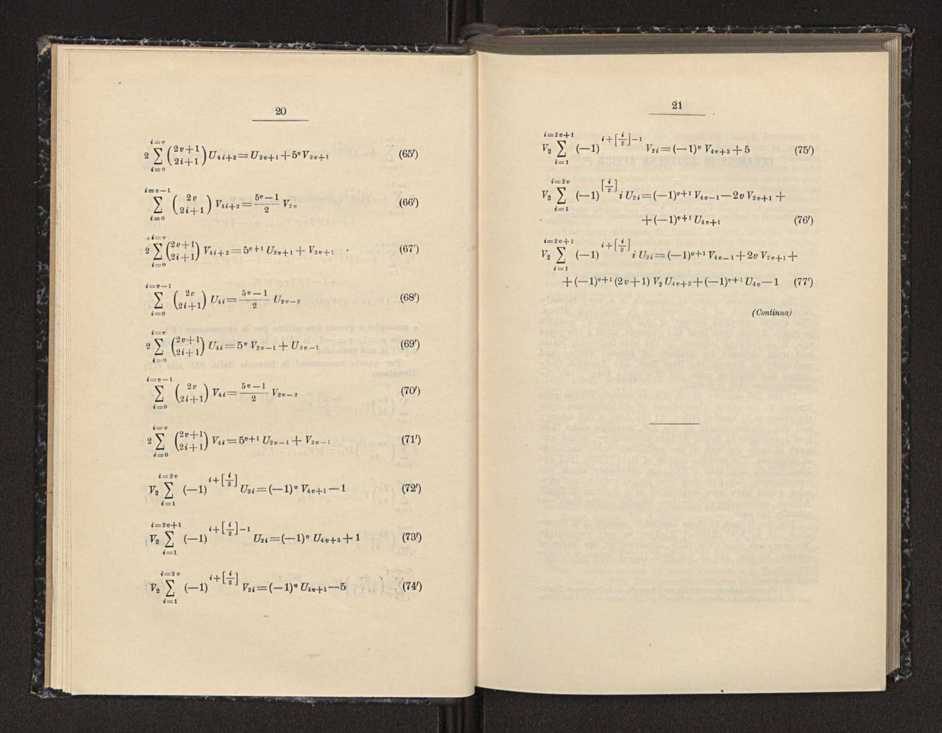 20
$2\sum_{i=0}^{i=v}\binom{2v+1}{2i+1}U_{4i+2}=U_{2v+1}+5^{v}V_{2v+1}$ (65′)
$\sum_{i=0}^{i=v-1}\binom{2v}{2i+1}V_{4i+2}=\frac{5^{v}-1}{2}V_{2v}$ (66′)
$2\sum_{i=0}^{i=v}\binom{2v+1}{2i+1}V_{4i+2}=5^{v+1}U_{2v+1}+V_{2v+1}$ (67′)
$\sum_{i=0}^{i=v-1}\binom{2v}{2i+1}U_{4i}=\frac{5^{v}-1}{2}U_{2v-2}$ (68′)
$2\sum_{i=0}^{i=v}\binom{2v+1}{2i+1}U_{4i}=5^{v}V_{2v-1}+U_{2v-1}$ (69′)
$\sum_{i=0}^{i=v-1}\binom{2v}{2i+1}V_{4i}=\frac{5^{v}-1}{2}V_{2v-2}$ (70′)
$2\sum_{i=0}^{i=v}\binom{2v+1}{2i+1}V_{4i}=5^{v+1}U_{2v-1}+V_{2v-1}$ (71′)
$V_{2}\sum_{i=1}^{i=2v}(-1)^{i+\left[\frac{i}{2}\right]}U_{2i}=(-1)^{v}V_{4v+1}-1$ (72′)
$V_{2}\sum_{i=1}^{i=2v+1}(-1)^{i+\left[\frac{i}{2}\right]-1}U_{2i}=(-1)^{v}U_{4v+3}+1$ (73′)
$V_{2}\sum_{i=1}^{i=2v}(-1)^{i+\left[\frac{i}{2}\right]}V_{2i}=(-1)^{v}U_{4v+1}-5$ (74′)
21
$V_{2}\sum_{i=1}^{i=2v+1}(-1)^{i+\left[\frac{i}{2}\right]-1}V_{2i}=(-1)^{v}V_{4v+3}+5$ (75′)
$V_{2}\sum_{i=1}^{i=2v}(-1)^{\left[\frac{i}{2}\right]}i\,U_{2i}=(-1)^{v+1}V_{4v-1}-2v\,V_{2v+1}+$
$+(-1)^{v+1}U_{4v+1}$ (76′)
$V_{2}\sum_{i=1}^{i=2v+1}(-1)^{i+\left[\frac{i}{2}\right]}i\,U_{2i}=(-1)^{v+1}V_{4v-1}+2v\,V_{2v+1}+$
$+(-1)^{v+1}(2v+1)V_{2}U_{4v+2}+(-1)^{v+1}U_{4v}-1$ (77′)
(Continua)